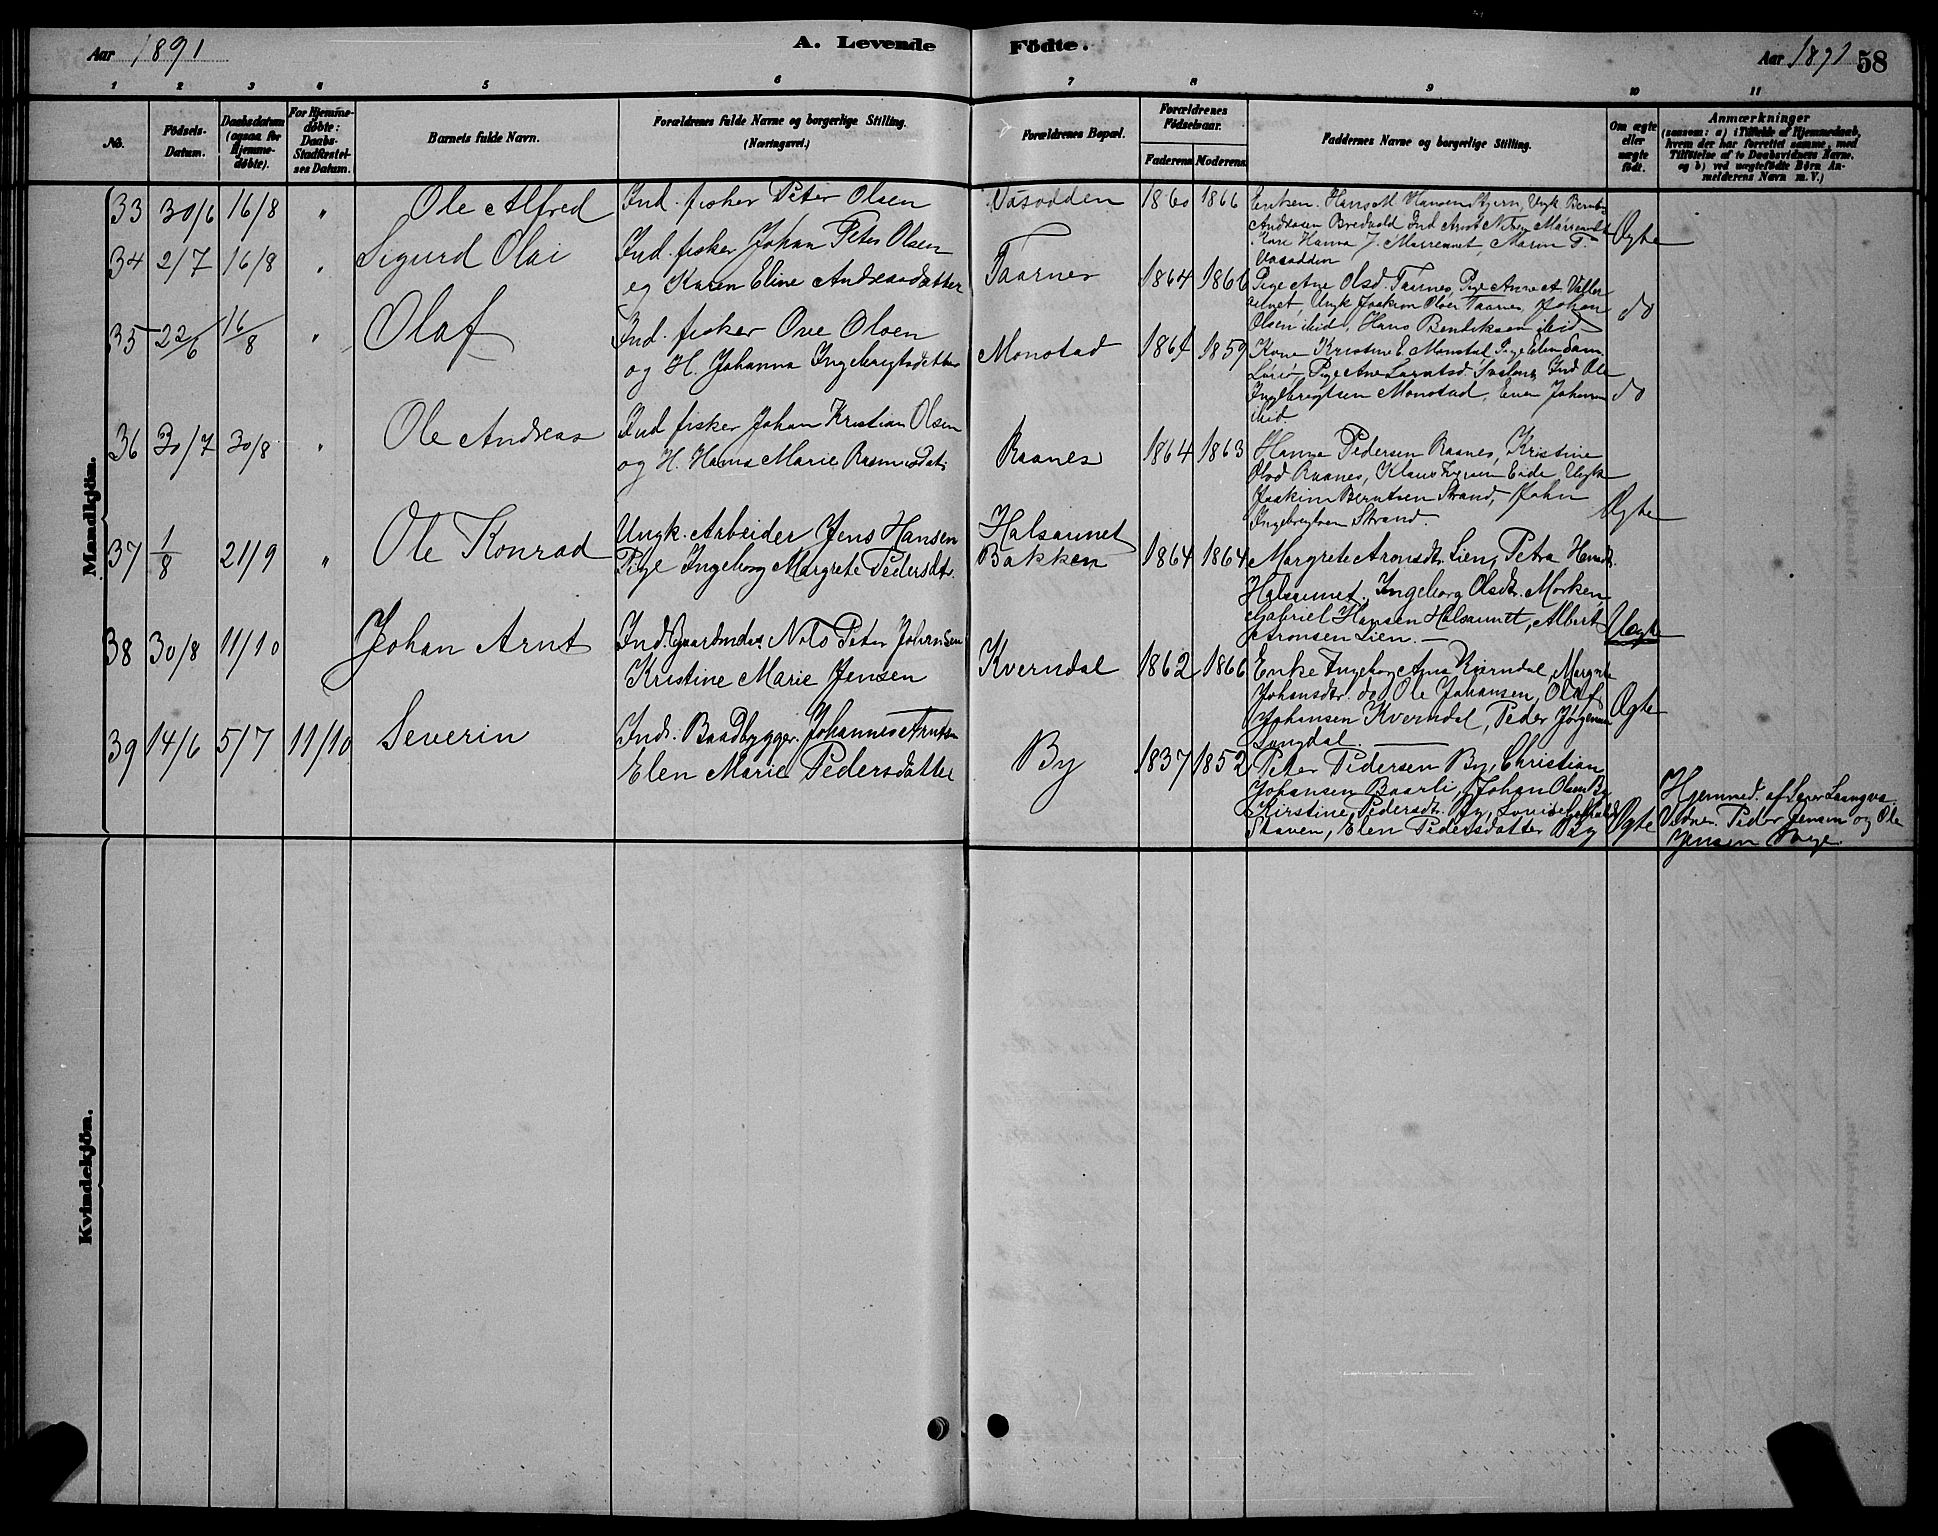 Aar 1891
A. Levende Födte.
Aar 1891 58
1 2 3 4 5 6 7 8 9 10 11
No.
Födsels-Datum.
Daabsdatum (ogsaa for Hjemme-döbte).
For Hjemme-döbte: Daabs-Stadfæstel-ses Datum.
Barnets fulde Navn.
Forældrenes fulde Navne og borgerlige Stilling. (Næringsvei.)
Forældrenes Bopæl.
Forældrenes Födselsaar.
Faderens Moderens
Faddernes Navne og borgerlige Stilling.
Om ægte eller uægte födt.
Anmærkninger
(saasom: a) i Tilfælde af Hjemmedaab, hvem der har forrettet samme, med Tilföielse af to Daabsvidners Navne, og b) ved uægtefödte Börn An-melderens Navn m. V.)
Mandkjön.
33 30/6 16/8 " Ole Alfred
Ind. fisker Peter Olsen
Vasodden 1860 1866
Hans M Hansen Ungk
Andreasen Bredvold Ind Arnt
Hanna J.
Vasodden
Ægte
34 2/7 16/8 " Sigurd Olai
Ind. fisker Johan Peter Olsen
og Karen Eline Andreasdatter
Taarnes 1864 1861
Pige Ane Olsd. Taarnes, Pige Anne A.
Ungk Joakim Olsen Taarnes, Johan
Olsen ibid, Hans Benriksen ibid
do
35 22/6 16/8 " Olaf
Ind. fisker Ove Olsen
og H. Johanna Ingebrigtsdatter
Monstad 1864 1859
Kone Kristine E. Monstad, Pige Elen
Pige Ane Ind Ole
Ingebregtsen Monstad, Even Johansen
ibid.
do
36 30/7 30/8 " Ole Andreas
Ind fisker Johan Kristian Olsen
og H. Hanna Marie Rasmusdat.
Raanes 1864 1863
Pedersen Raanes, Kristine
Olsd Raanes, Klaus Eide, Ungk
Joakim Berntsen Strand, John
Ingebregtsen Strand.
Ægte
37 1/8 21/9 " Ole Konrad
Ungk. Arbeider Jens Hansen
Pige Ingeborg Margrete Pedersdtr.
Halsaunet
Bakken 1864 1864
Margrete Aronsdtr. Lien, Petra Hansdtr.
Halsaunet, Ingeborg Olsdtr. Morken,
Gabriel Hansen Halsaunet, Albert
Aronsen Lien. —
Uægte
38 30/8 11/10 Johan Arnt
Ind. Gaardmdr. Nils Peter Johansen
Kristine Marie Jensen
Kverndal 1862 1866
Enke Ingeborg Anna Kverndal, Margrete
Johansdtr. do, Ole Johansen, Olaf
Johansen Kverndal, Peder Jørgensen
Langdal. —
Ægte
39 14/6 5/7 11/10 Severin
Inds. Baadbygger Johannes Arntsen
Elen Marie Pedersdatter
By 1837 1852
Peter Pedersen By, Christian
Johansen Baarli, Johan Olsen By
Kirstine Pedersdtr. By, Lovise
Staven, Elen Pedersdatter By
Ægte
Hjemmed. af Lærer
Vidner Peder Jensen og Ole
Jensen
Kvindekjön.